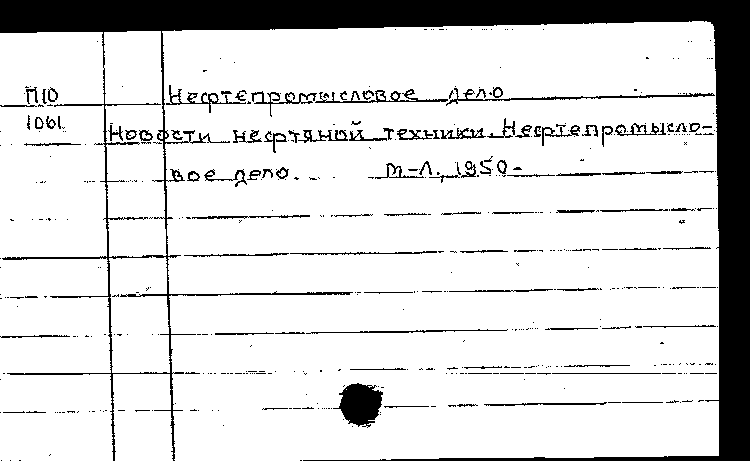 П10 Нефтепромысловое дело
1061 Новости нефтяной техники. Нефтепромысло-
вое дело. М.-Л., 1950-